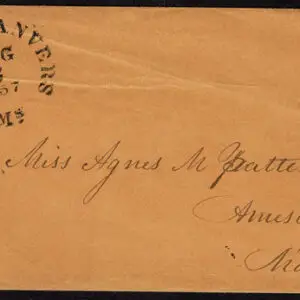 ANVERS
G
57
Ms
Miss Agnes M Patte
Ames
Ma